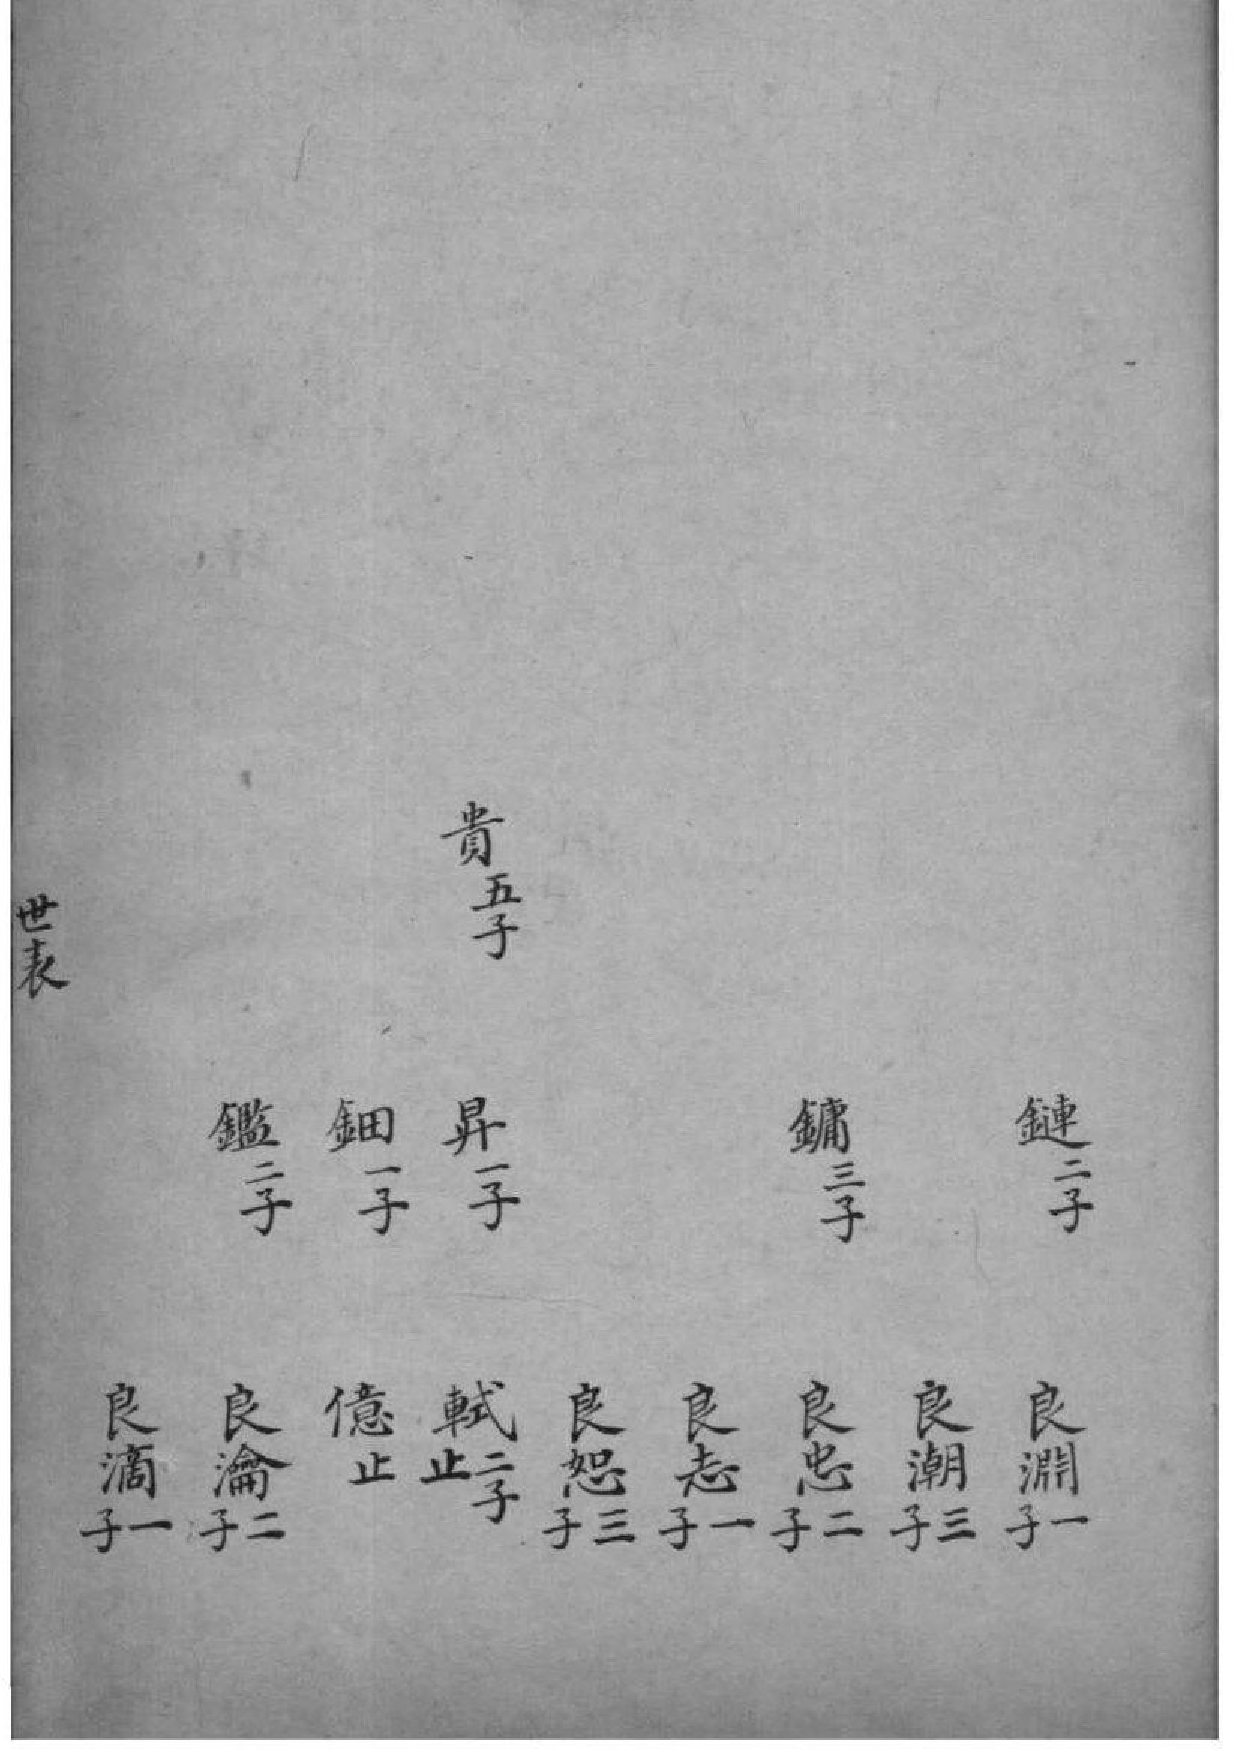 貴五子
鏈二子
鏞三子
昇一子
鈿一子
鑑二子
良淵一子
良潮三子
良忠二子
良志一子
良恕三子
軾二子止
億止
良瀹二子
良滴一子
世表